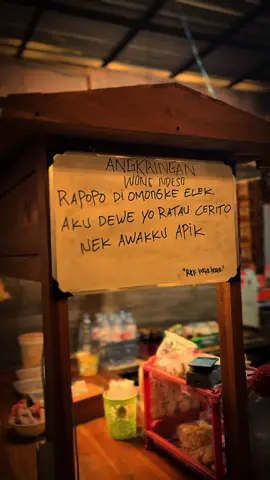 ANGKRINGAN
WONG NDESO
RAPOPO DI OMONGKE ELEK.
AKU DEWE YO RATAU CERITO
NEK AWAKKU APIK